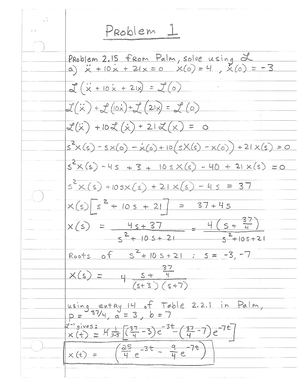 Problem 1
Problem 2.15 from Palm, solve using ℒ
a) ẍ + 10ẋ + 21x = 0 x(0) = 4, ẋ(0) = -3
ℒ(ẍ + 10ẋ + 21x) = ℒ(0)
ℒ(ẍ) + ℒ(10ẋ) + ℒ(21x) = ℒ(0)
ℒ(ẍ) + 10ℒ(ẋ) + 21ℒ(x) = 0
s²X(s) - sx(0) - ẋ(0) + 10(sX(s) - x(0)) + 21X(s) = 0
s²X(s) - 4s + 3 + 10sX(s) - 40 + 21X(s) = 0
s²X(s) + 10sX(s) + 21X(s) - 4s = 37
X(s)[s² + 10s + 21] = 37 + 4s
X(s) = (4s + 37)/(s² + 10s + 21) = 4(s + 37/4)/(s² + 10s + 21)
Roots of s² + 10s + 21 : s = -3, -7
X(s) = 4 (s + 37/4)/((s+3)(s+7))
using entry 14 of Table 2.2.1 in Palm,
p = 37/4, a = 3, b = 7
ℒ⁻¹ gives:
x(t) = 4 [(37/4 - 3)e^-3t - (37/4 - 7)e^-7t]
x(t) = (25/4 e^-3t - 9/4 e^-7t)